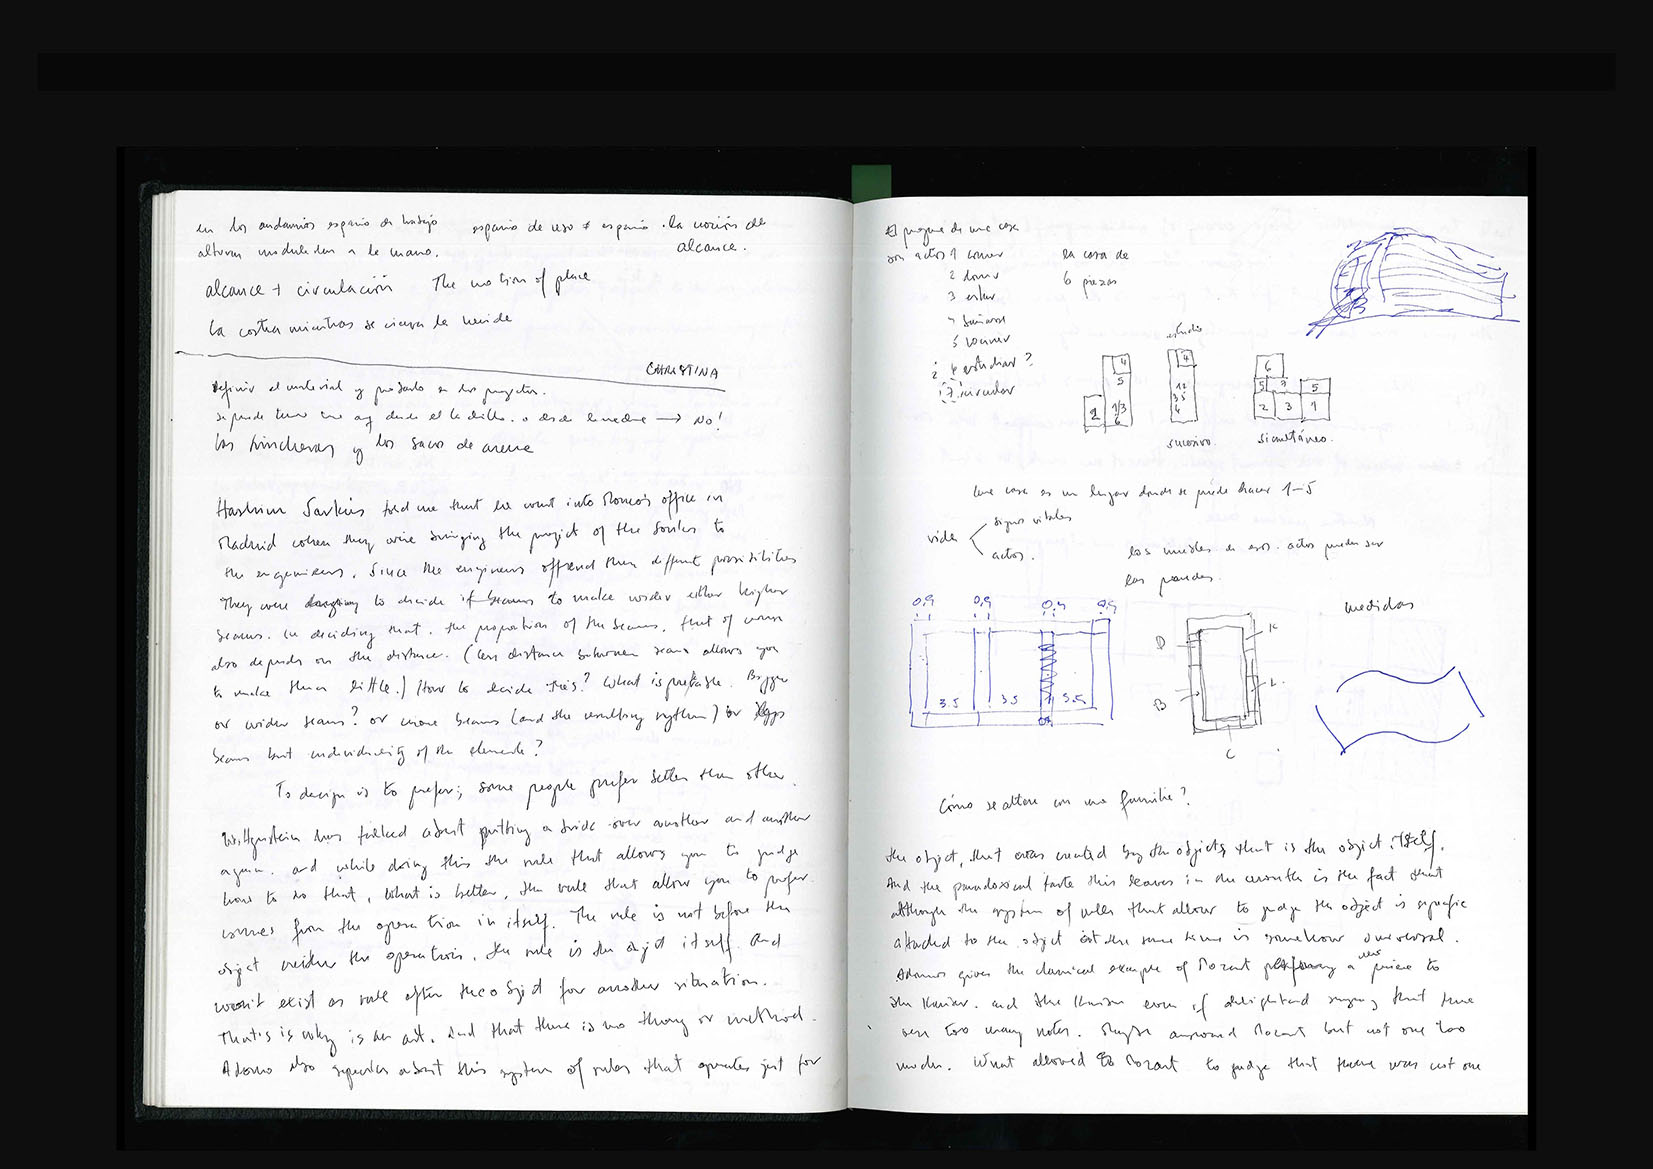 en los andamios espacio de trabajo
alturas moduladas a la mano.
espacio de uso ≠ espacio . la noción de
alcance.
alcance + circulación The notion of place
la costra mientras se cierra la herida
CHRISTINA
Definir el material y pasarlo a los proyectos.
se puede tener una arq desde el ladrillo o desde → No!
las trincheras y los sacos de arena
Hashim Sarkis told me that he went into Moneo's office in
Madrid when they were bringing the project of the Souks to
the engineers. Since the engineers offered them different possibilities
They were to decide if beams to make wider either higher
beams. In deciding that, the proportion of the beams, that of course
also depends on the distance. (less distance between beams allows you
to make them little.) How to decide this? What is preferable. Bigger
or wider beams? or more beams (and the resulting rythm) or
beams but individuality of the elements?
To design is to prefer; some people prefer better than other.
Wittgenstein has talked about putting a brick over another and another
again. and while doing this the rule that allows you to judge
how to do that, what is better, the rule that allow you to prefer
comes from the operation in itself. The rule is not before the
object neither the operation. the rule is the object itself. And
won't exist as rule after the object for another situation.
That's is why is an art. And that there is no theory or method.
Adorno also speaks about this system of rules that operates just for
El programa de una casa
son actos 1 comer
2 dormir
3 estar
4 bañarse
5 cocinar
¿ 6 estudiar?
¿7? circular
la casa de
6 piezas
estudio
4
5
2
1/3
6
4
12
35
4
sucesivo.
6
5 7 5
2 3 1
simultáneo.
Una casa es un lugar donde se puede hacer 1–5
vida
signos vitales
actos.
los muebles de esos actos pueden ser
las paredes.
0,9 0,9 0,9 0,9
3.5 3.5 3.5
D
K
B
L.
C
medidas
Cómo se altera con una familia?
the object, that was created by the object, that is the object itself.
And the paradoxical taste this leaves in the mouth is the fact that
although the system of rules that allow to judge the object is specific
attached to the object at the same time is somehow universal.
Adorno gives the classical example of Mozart performing a new piece to
the Kaiser. and the Kaiser even if delighted saying that there
were too many notes. Mozart but not one too
much. What allowed to Mozart to judge that there was not one